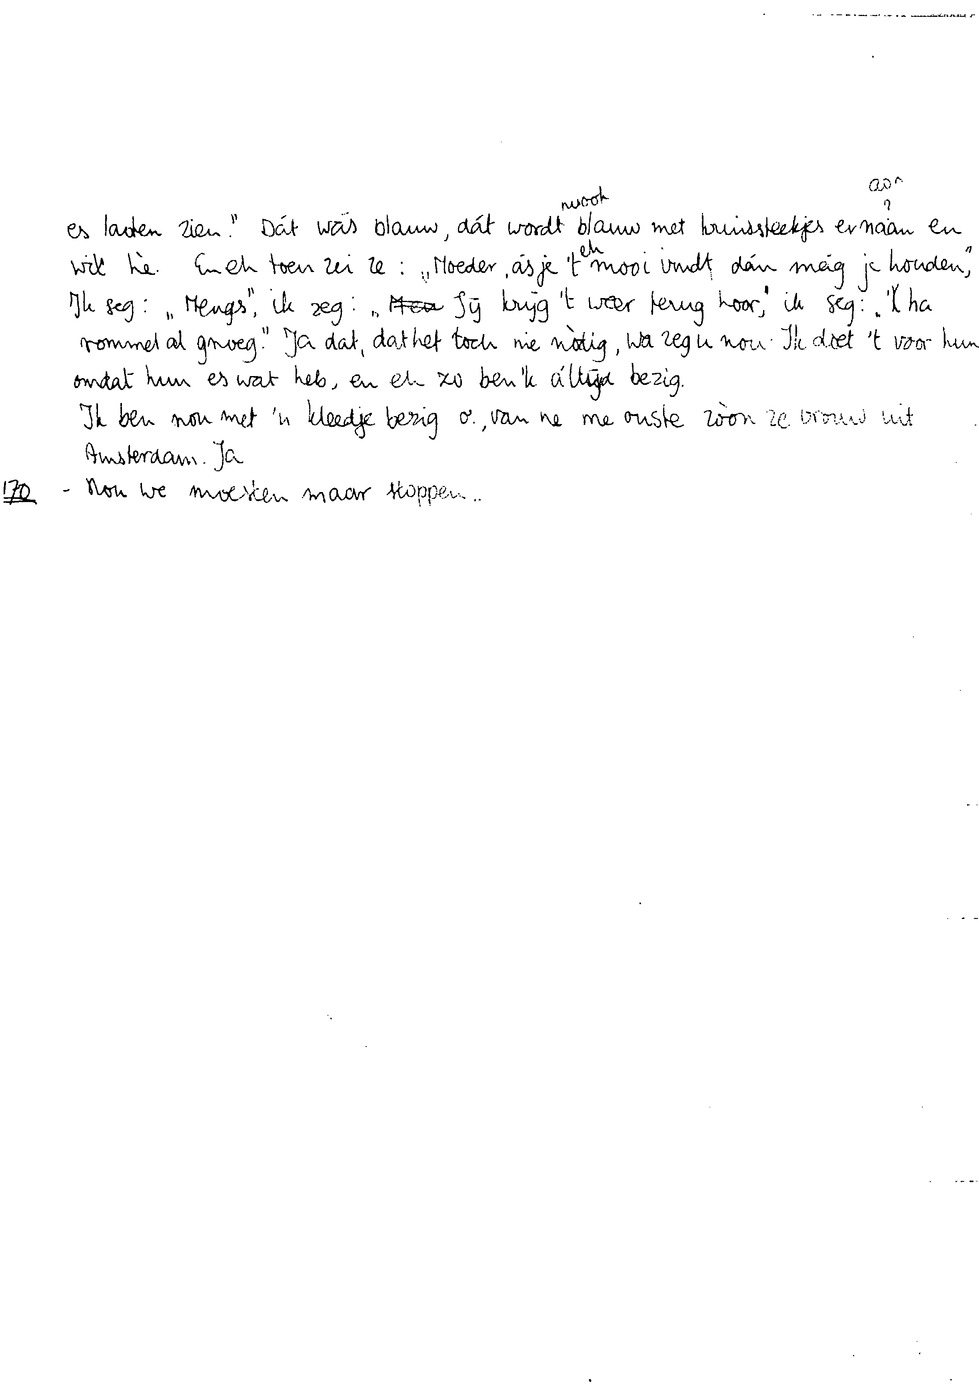 es laoten zien." Dát wàs blauw, dát wordt nwook blauw met kruissteekjes ernààn en aon ?
wit hè. En eh toen zei ze: „Moeder, ásje 't eh mooi vindt, dán màg je houden,"
Ik seg: „Mengs", ik zeg: „ Jij krijg 't weer terug hoor," ik seg: „'k ha
rommel al gnoeg." Ja dat, dat het toch nie nòdig, wa zeg u nou. Ik doet 't voor hun
omdat hun es wat heb, en eh zo ben 'k áltijd bezig.
Ik ben nou met 'n kleedje bezig o., van ne me ouste zòòn ze vrouw uit
Amsterdam. Ja
170 - Nou we moesten maar stoppen..